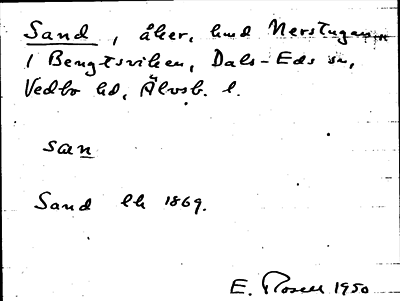 Sand, åker, hmd Nerstugan
i Bengtsviken, Dals-Eds sn,
Vedbo hd, Älvsb. l.
san
Sand lh 1869.
E. Rosell 1950